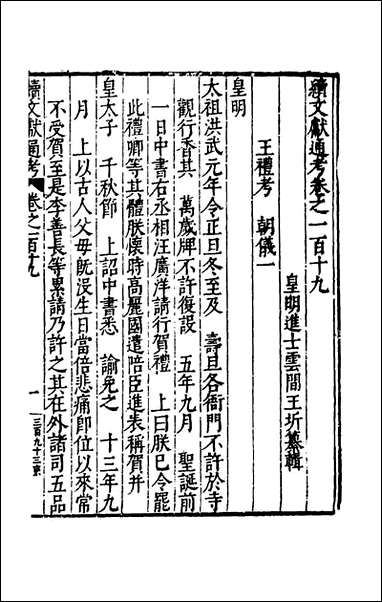 續文獻通考卷之一百十九
皇明進士雲間王圻纂輯
王禮考　朝儀一
皇明
太祖洪武元年令正旦冬至及　壽旦各衙門不許於寺
觀行香其　萬歲牌不許復設　五年九月　聖誕前
一日中書右丞相汪廣洋請行賀禮　上曰朕已令罷
此禮卿等其體朕懷時高麗國遣陪臣進表稱賀并
皇太子　千秋節　上詔中書悉　諭免之　十三年九
月　上以古人父母既没生日當倍悲痛即位以來常
不受賀至是李善長等累請乃許之其在外諸司五品
續文獻通考　卷之百十九　一　三百九十三